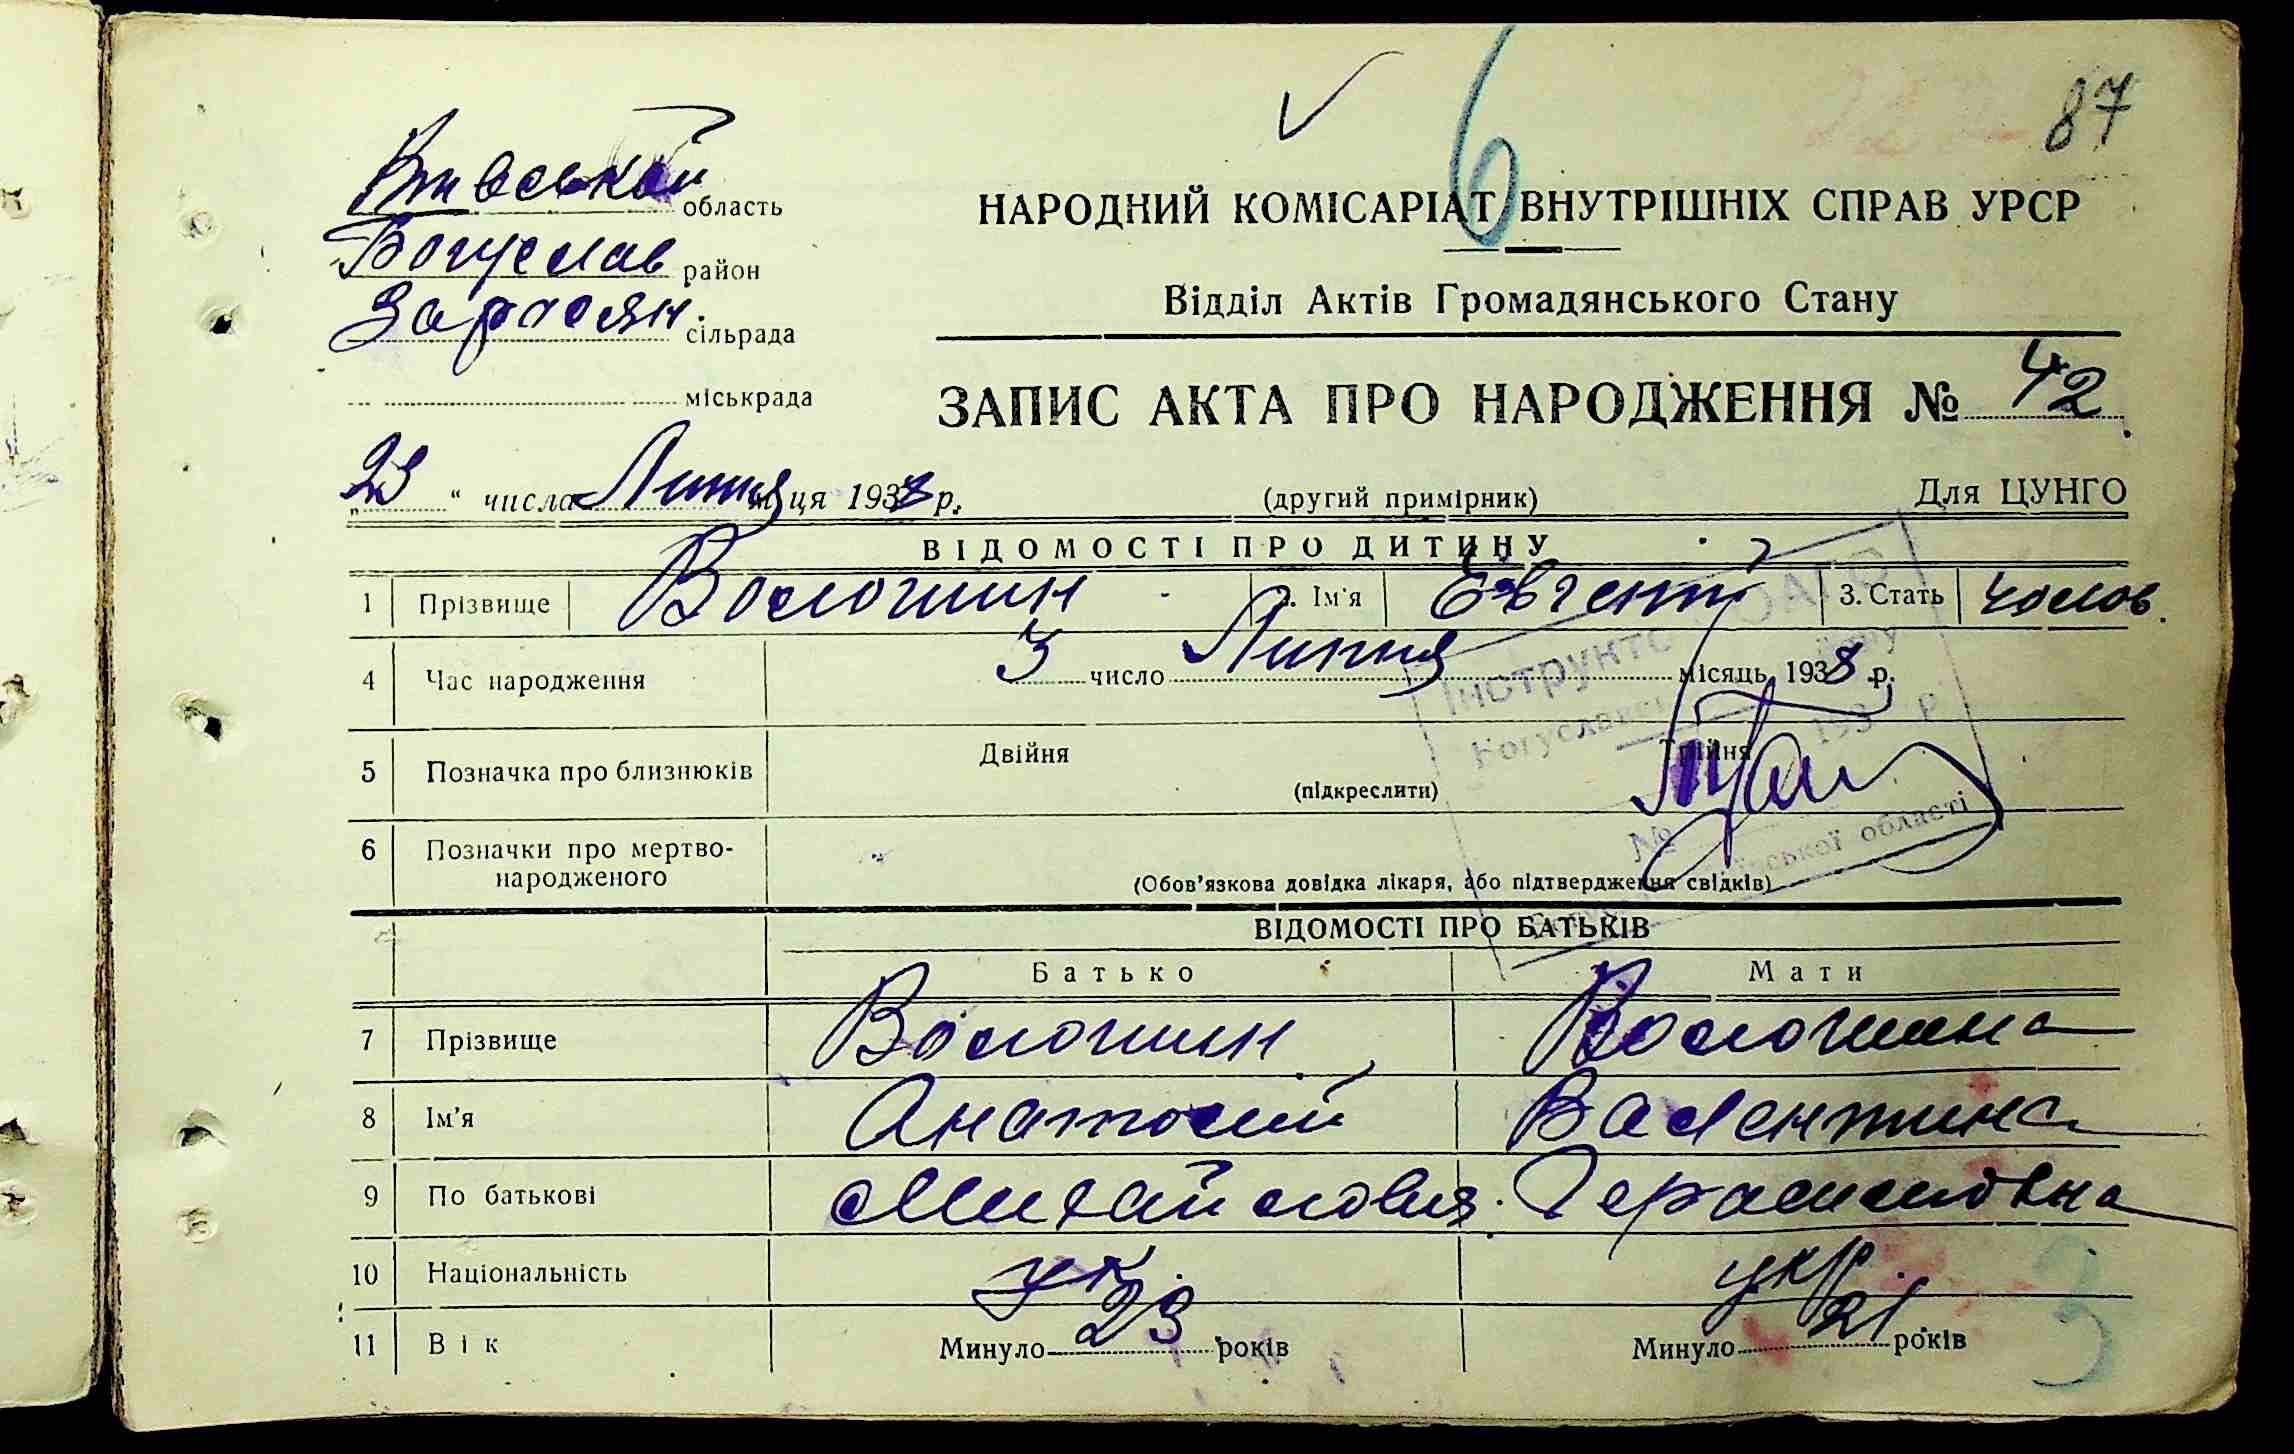 6
87
Київської область
Богуслав район
сільрада
міськрада
НАРОДНИЙ КОМІСАРІАТ ВНУТРІШНІХ СПРАВ УРСР
Відділ Актів Громадянського Стану
ЗАПИС АКТА ПРО НАРОДЖЕННЯ № 42
„23“ числа Липня м-ця 1938 р.
(другий примірник)
Для ЦУНГО
ВІДОМОСТІ ПРО ДИТИНУ
1 Прізвище Волошин 2. Ім'я Євгеній 3. Стать Чолов.
4 Час народження 3 число Липня місяць 1938 р.
5 Позначка про близнюків Двійня Трійня
(підкреслити)
6 Позначки про мертво-
народженого
(Обов'язкова довідка лікаря, або підтвердження свідків)
ВІДОМОСТІ ПРО БАТЬКІВ
Батько Мати
7 Прізвище Волошин Волошина
8 Ім'я Анатолий Валентина
9 По батькові Михайлович Герасимовна
10 Національність ук. укр
11 Вік Минуло 23 років Минуло 21 років
3